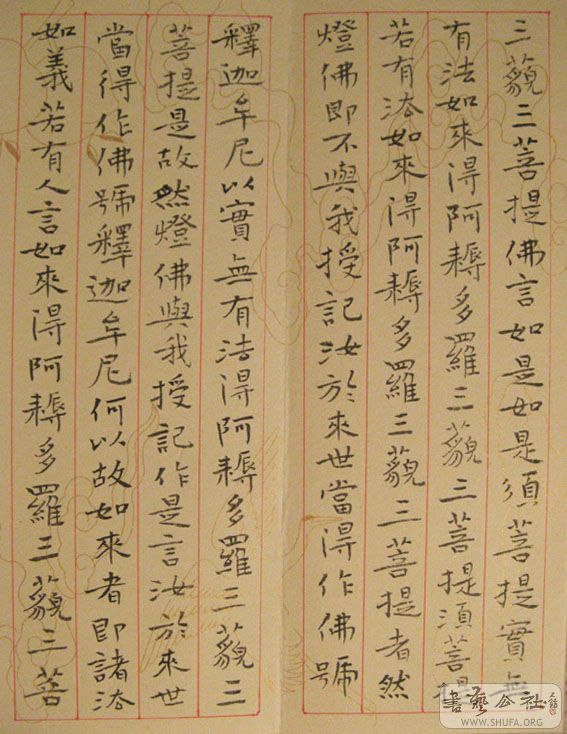 三藐三菩提佛言如是如是須菩提實無
有法如來得阿耨多羅三藐三菩提須菩提
若有法如來得阿耨多羅三藐三菩提者然
燈佛即不與我授記汝於來世當得作佛號
釋迦牟尼以實無有法得阿耨多羅三藐三
菩提是故然燈佛與我授記作是言汝於來世
當得作佛號釋迦牟尼何以故如來者即諸法
如義若有人言如來得阿耨多羅三藐三菩
書藝公社
WWW.SHUFA.ORG